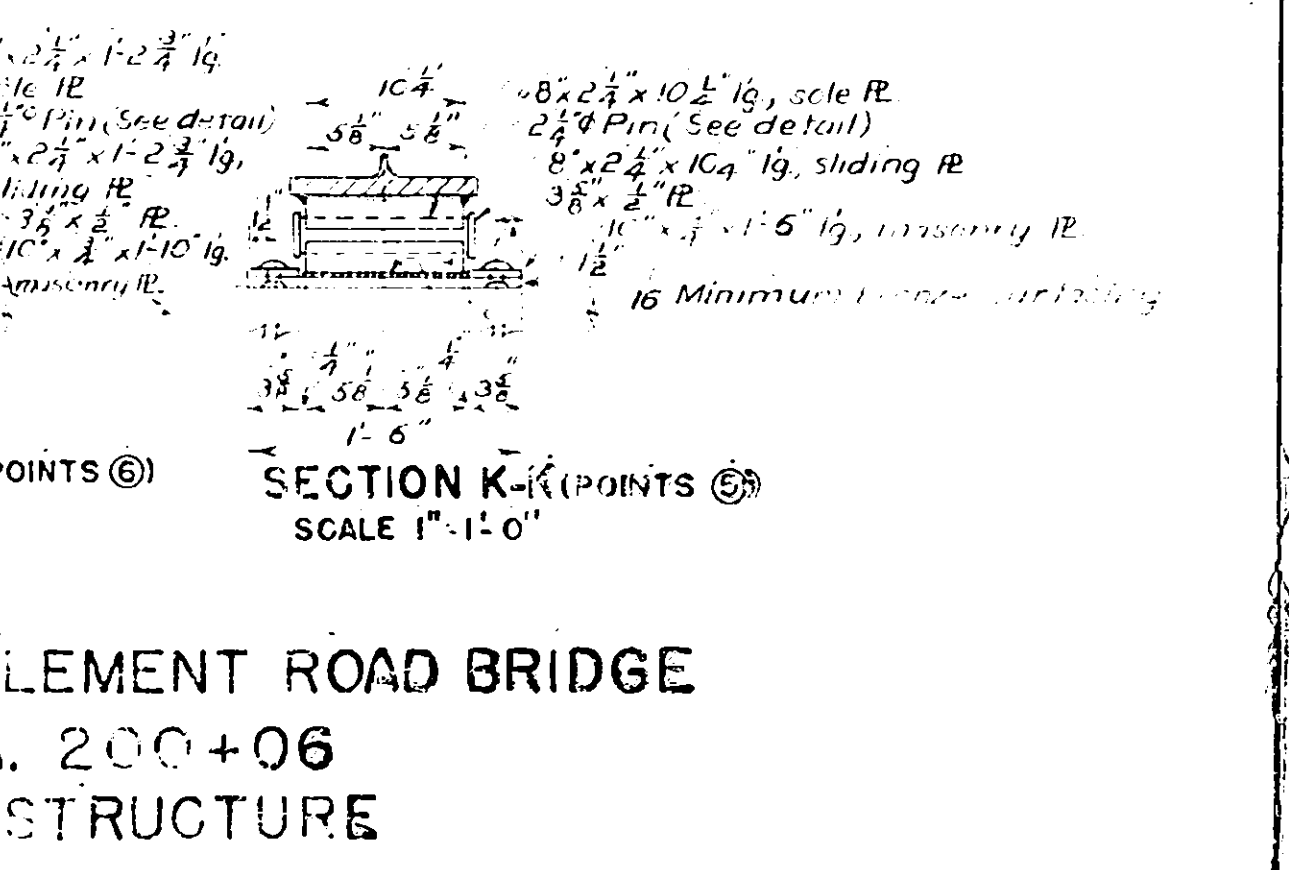 x2 1/4" x 1'-2 3/4" lg.
℄
Pin (See detail)
"x2 1/4" x 1'-2 3/4" lg,
sliding ℄
3 5/8" x 1/2" ℄.
10" x 3/4" x 1'-10" lg.
masonry ℄.
10 1/4"
5 1/8" 5 1/8"
1 1/2"
8" x 2 1/4" x 10 1/4" lg., sole ℄
2 1/4" ⌀ Pin (See detail)
8" x 2 1/4" x 10 4" lg., sliding ℄
3 5/8" x 1/2" ℄
10" x x 1'-6" lg, masonry ℄.
1 1/2"
16 Minimum
1/4" 1/4"
3 5/8 5 1/8 5 1/8 3 5/8"
1'-6"
POINTS ⑥)
SECTION K-K (POINTS ⑤)
SCALE 1"=1'-0"
LEMENT ROAD BRIDGE
. 200+06
STRUCTURE